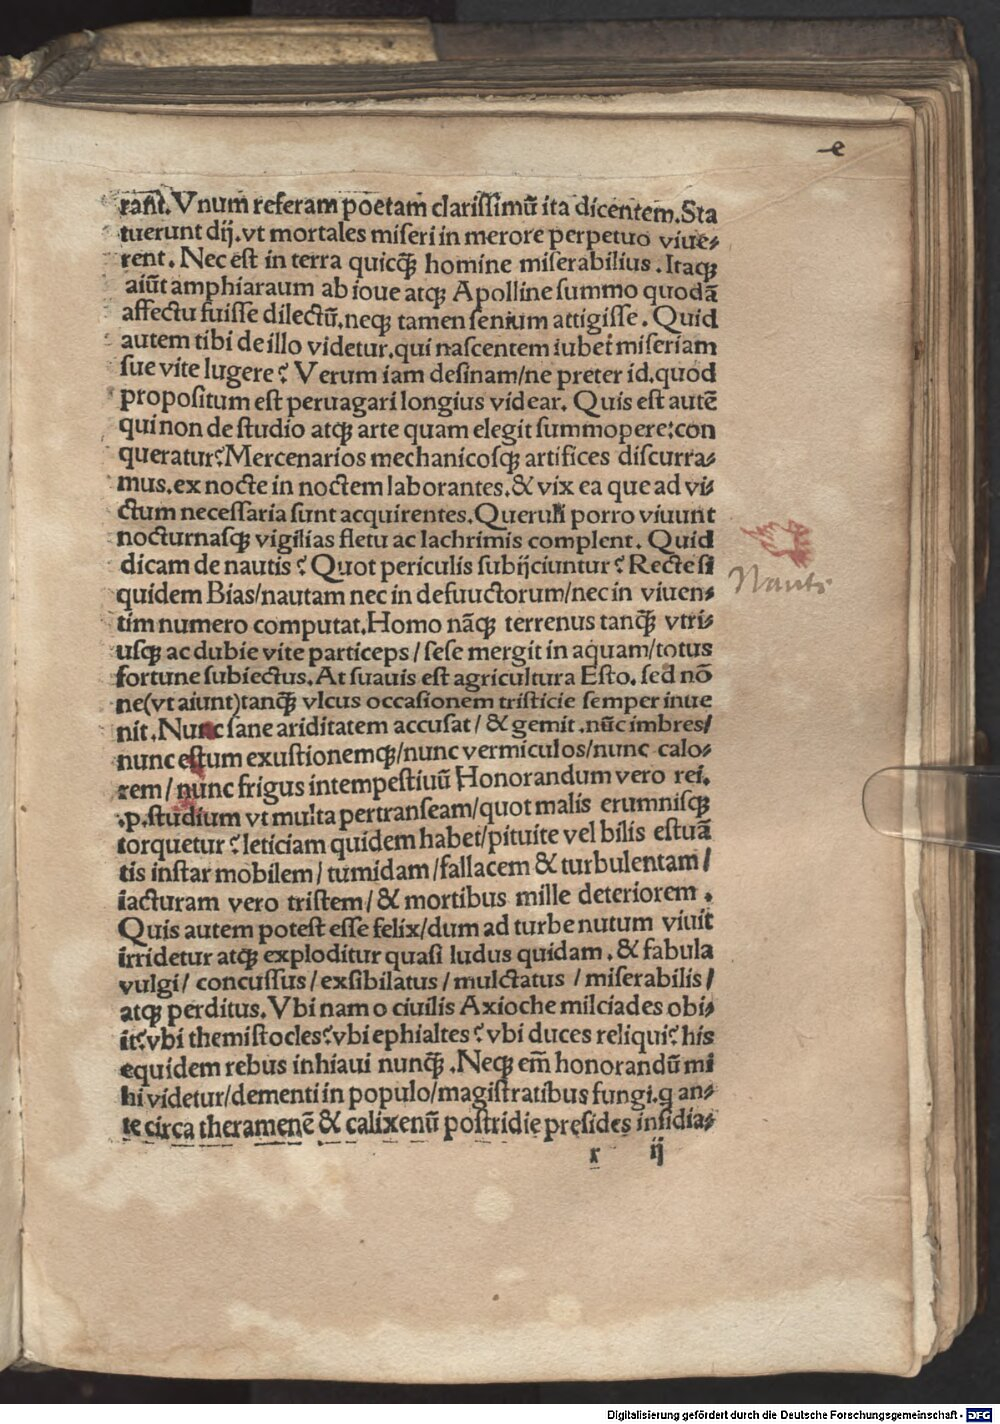 e
rant. Vnum referam poetam clarissimū ita dicentem. Sta
tuerunt dij. vt mortales miseri in merore perpetuo viue⸗
rent. Nec est in terra quicq̄ꝫ homine miserabilius. Itaqꝫ
aiūt amphiaraum ab ioue atqꝫ Apolline summo quodā
affectu fuisse dilectū. neqꝫ tamen senium attigisse. Quid
autem tibi de illo videtur. qui nascentem iubet miseriam
sue vite lugere? Verum iam desinam/ne preter id. quod
propositum est peruagari longius videar. Quis est autē
qui non de studio atqꝫ arte quam elegit summopere: con
queratur? Mercenarios mechanicosqꝫ artifices discurra⸗
mus. ex nocte in noctem laborantes. & vix ea que ad vi⸗
ctum necessaria sunt acquirentes. Queruli porro viuunt
nocturnasqꝫ vigilias fletu ac lachrimis complent. Quid
dicam de nautis? Quot periculis subijciuntur? Recte si
quidem Bias/nautam nec in defuuctorum/nec in viuen⸗
tim numero computat. Homo nāqꝫ terrenus tanq̄ꝫ vtri⸗
usqꝫ ac dubie vite particeps/sese mergit in aquam/totus
fortune subiectus. At suauis est agricultura Esto. sed nō
ne(vt aiunt)tanq̄ꝫ vlcus occasionem tristicie semper inue
nit. Nunc sane ariditatem accusat/& gemit. nūc imbres/
nunc estum exustionemqꝫ/nunc vermiculos/nunc calo⸗
rem/nunc frigus intempestiuū Honorandum vero rei.
.p. studium vt multa pertranseam/quot malis erumnisqꝫ
torquetur? leticiam quidem habet/pituite vel bilis estuā
tis instar mobilem/tumidam/fallacem & turbulentam/
iacturam vero tristem/& mortibus mille deteriorem.
Quis autem potest esse felix/dum ad turbe nutum viuit
irridetur atqꝫ exploditur quasi ludus quidam. & fabula
vulgi/concussus/exsibilatus/mulctatus/miserabilis/
atqꝫ perditus. Vbi nam o ciuilis Axioche milciades obi⸗
it? vbi themistocles? vbi ephialtes? vbi duces reliqui? his
equidem rebus inhiaui nunq̄ꝫ. Neqꝫ em̄ honorandū mi
hi videtur/dementi in populo/magistratibus fungi. q an⸗
te circa theramenē & calixenū postridie pręsides insidia⸗
r ij
Nauti
Digitalisierung gefördert durch die Deutsche Forschungsgemeinschaft - DFG